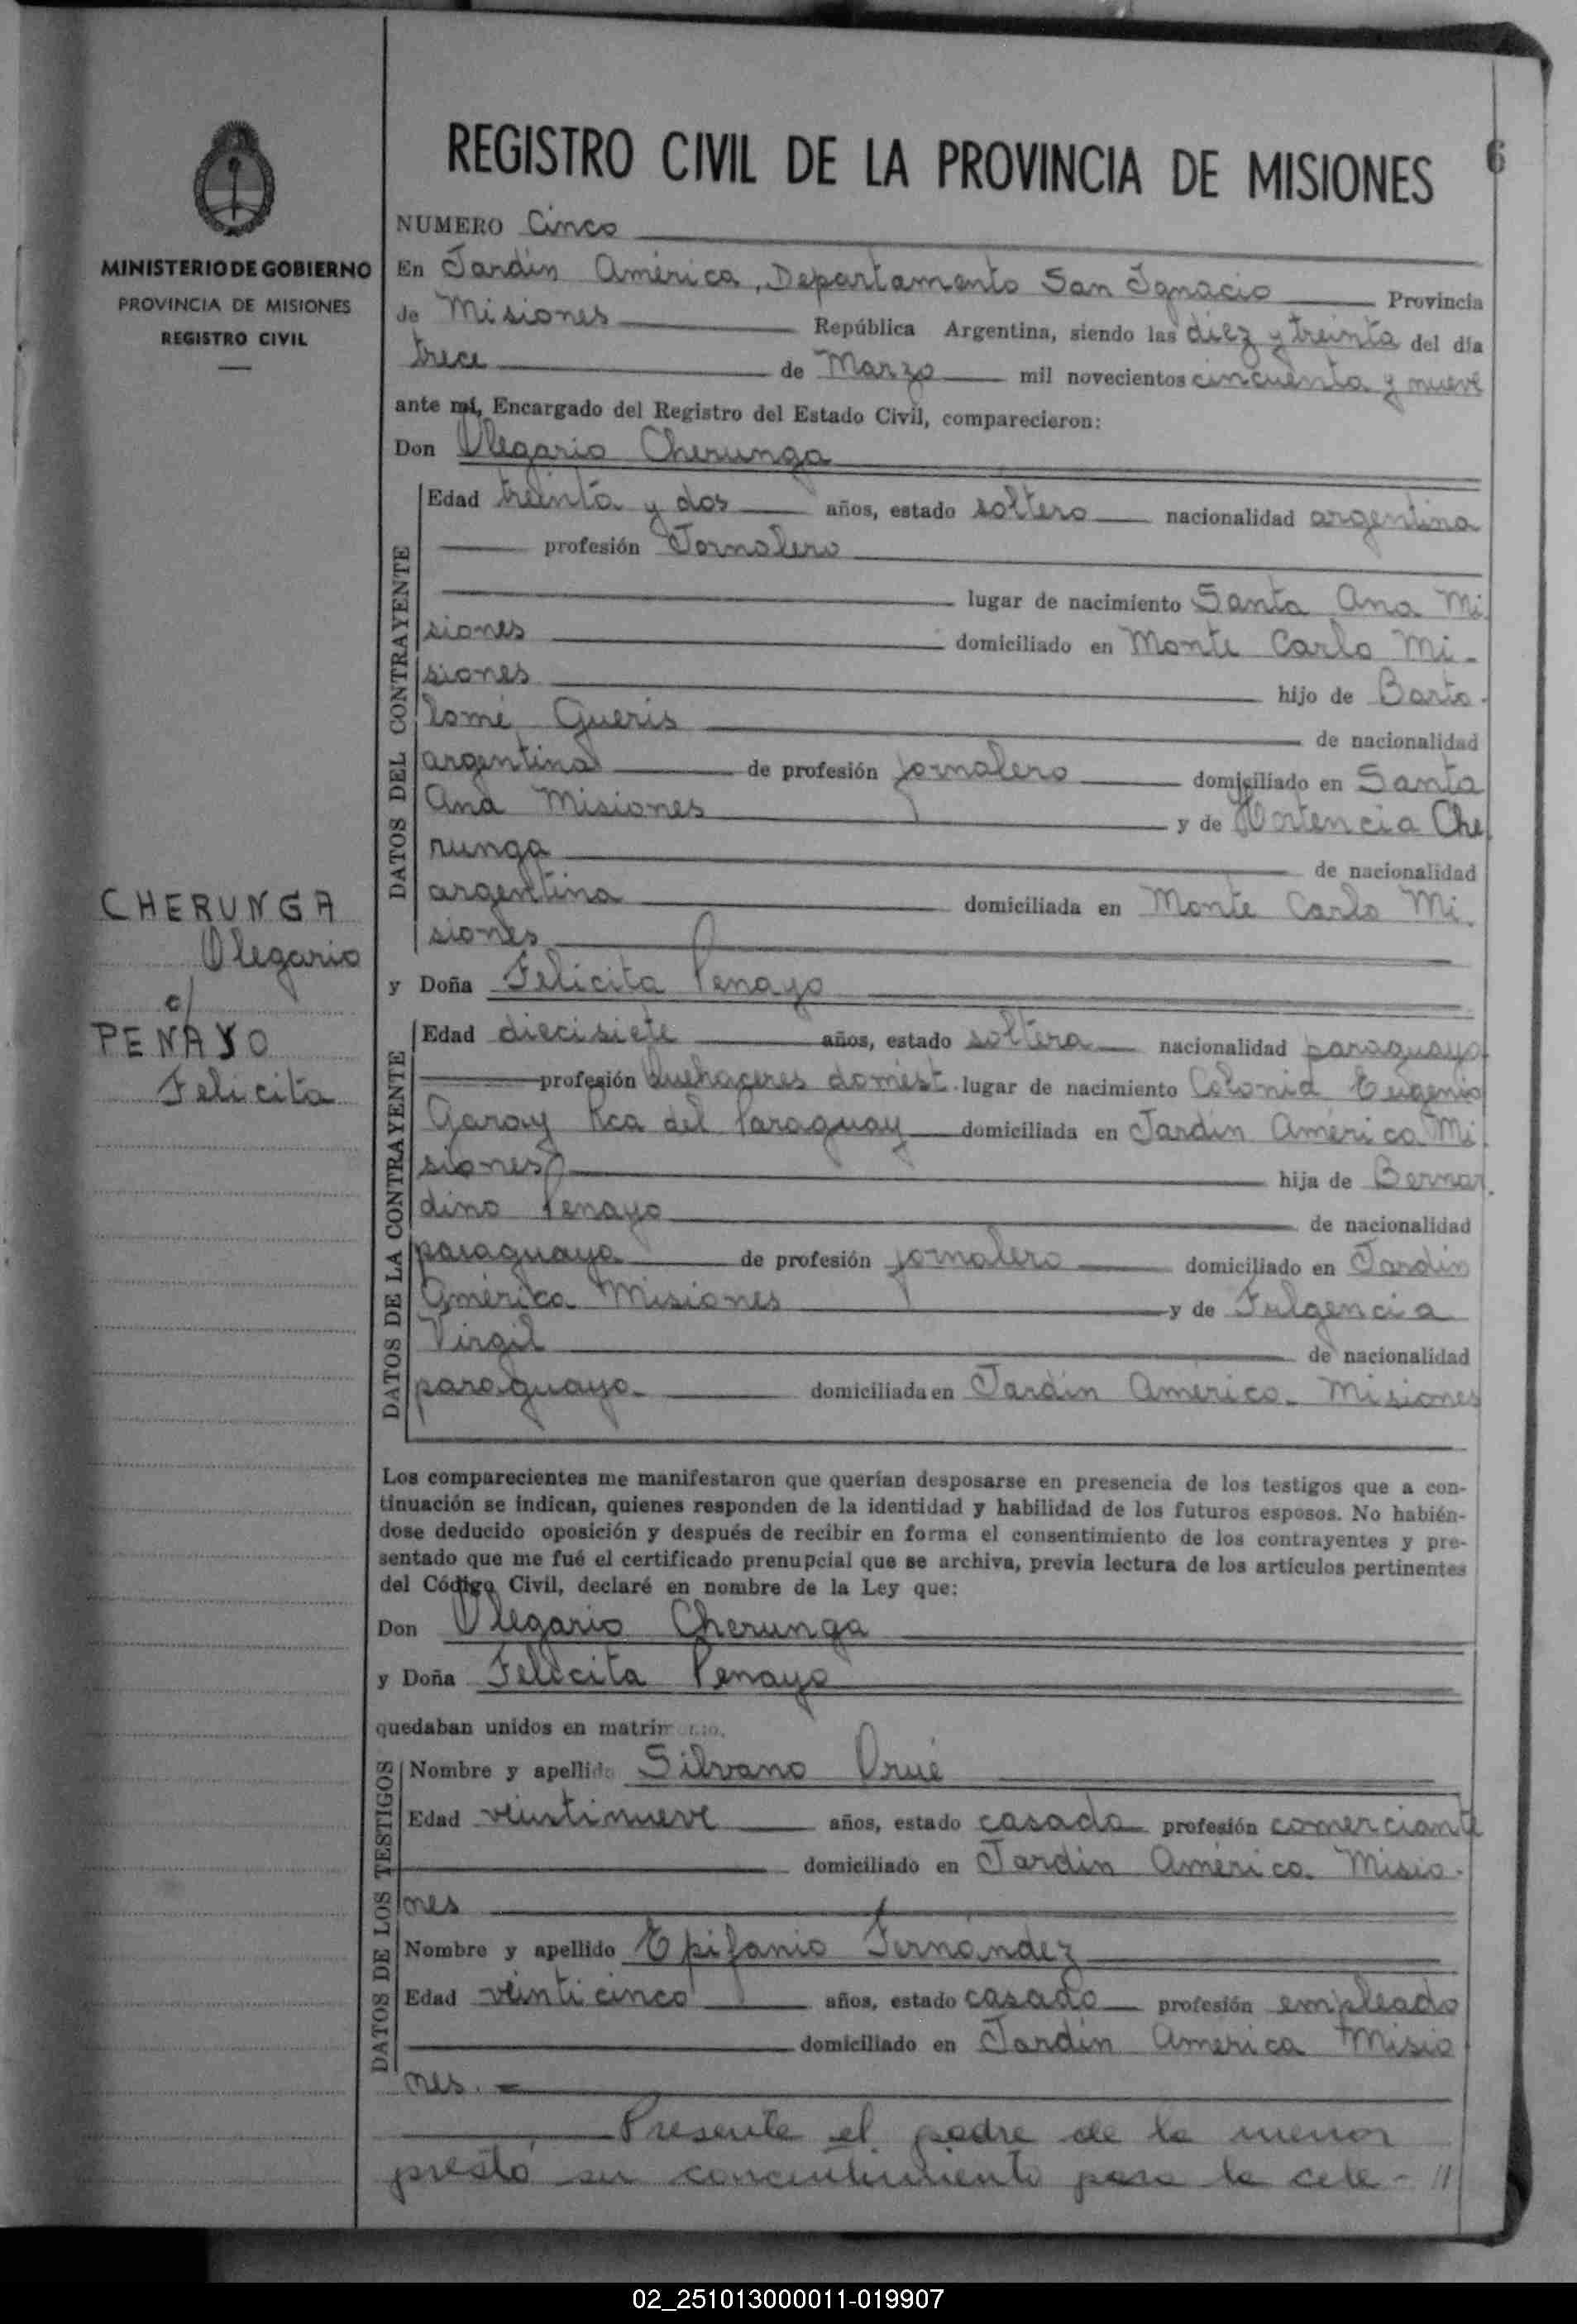 REGISTRO CIVIL DE LA PROVINCIA DE MISIONES
6
MINISTERIO DE GOBIERNO
PROVINCIA DE MISIONES
REGISTRO CIVIL
NUMERO Cinco
En Jardín América, Departamento San Ignacio Provincia
de Misiones República Argentina, siendo las diez y treinta del día
trece de Marzo mil novecientos cincuenta y nueve
ante mí, Encargado del Registro del Estado Civil, comparecieron:
Don Olegario Cherunga
DATOS DEL CONTRAYENTE
Edad treinta y dos años, estado soltero nacionalidad argentina
profesión Jornalero
lugar de nacimiento Santa Ana Mi
siones domiciliado en Monte Carlo Mi-
siones hijo de Barto-
lomé Gueris de nacionalidad
argentina de profesión jornalero domiciliado en Santa
Ana Misiones y de Hortencia Che
runga de nacionalidad
argentina domiciliada en Monte Carlo Mi.
siones
CHERUNGA
Olegario
c/
PENAYO
Felicita
y Doña Felicita Penayo
DATOS DE LA CONTRAYENTE
Edad diecisiete años, estado soltera nacionalidad paraguaya
profesión Quehaceres domést. lugar de nacimiento Colonia Eugenio
Garay Rca del Paraguay domiciliada en Jardín América Mi
siones hija de Bernar
dino Penayo de nacionalidad
paraguaya de profesión jornalero domiciliado en Jardín
América Misiones y de Fulgencia
Virgil de nacionalidad
paraguaya domiciliada en Jardín América Misiones
Los comparecientes me manifestaron que querían desposarse en presencia de los testigos que a con-
tinuación se indican, quienes responden de la identidad y habilidad de los futuros esposos. No habién-
dose deducido oposición y después de recibir en forma el consentimiento de los contrayentes y pre-
sentado que me fué el certificado prenupcial que se archiva, previa lectura de los artículos pertinentes
del Código Civil, declaré en nombre de la Ley que:
Don Olegario Cherunga
y Doña Felicita Penayo
quedaban unidos en matrimonio.
DATOS DE LOS TESTIGOS
Nombre y apellido Silvano Orué
Edad veintinueve años, estado casado profesión comerciante
domiciliado en Jardín América Misio-
nes
Nombre y apellido Epifanio Fernández
Edad veinticinco años, estado casado profesión empleado
domiciliado en Jardín América Misio
nes.=
Presente el padre de la menor
prestó su concentimiento para la cele-//
02_251013000011-019907